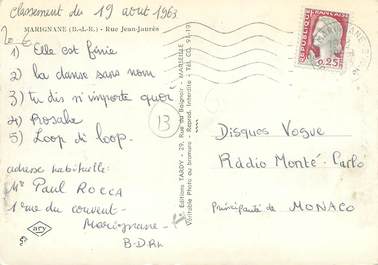 classement du 19 août 1963
20 €
MARIGNANE (B.-d.-R.) - Rue Jean-Jaurès
1) Elle est finie
2) la danse sans nom
3) tu dis n'importe quoi
4) Rosalie
5) Loop di loop.
13
adresse habituelle:
Mr Paul ROCCA
1 rue du couvent -
Marignane -
B.D.Rh
Editions TARDY - 29, Rue du Baignoir - MARSEILLE
Véritable Photo au bromure - Reprod. Interdite - Tél. CO. 91-19
REPUBLIQUE FRANCAISE
0,25
Disques Vogue
Radio Monté-Carlo
Principauté de MONACO